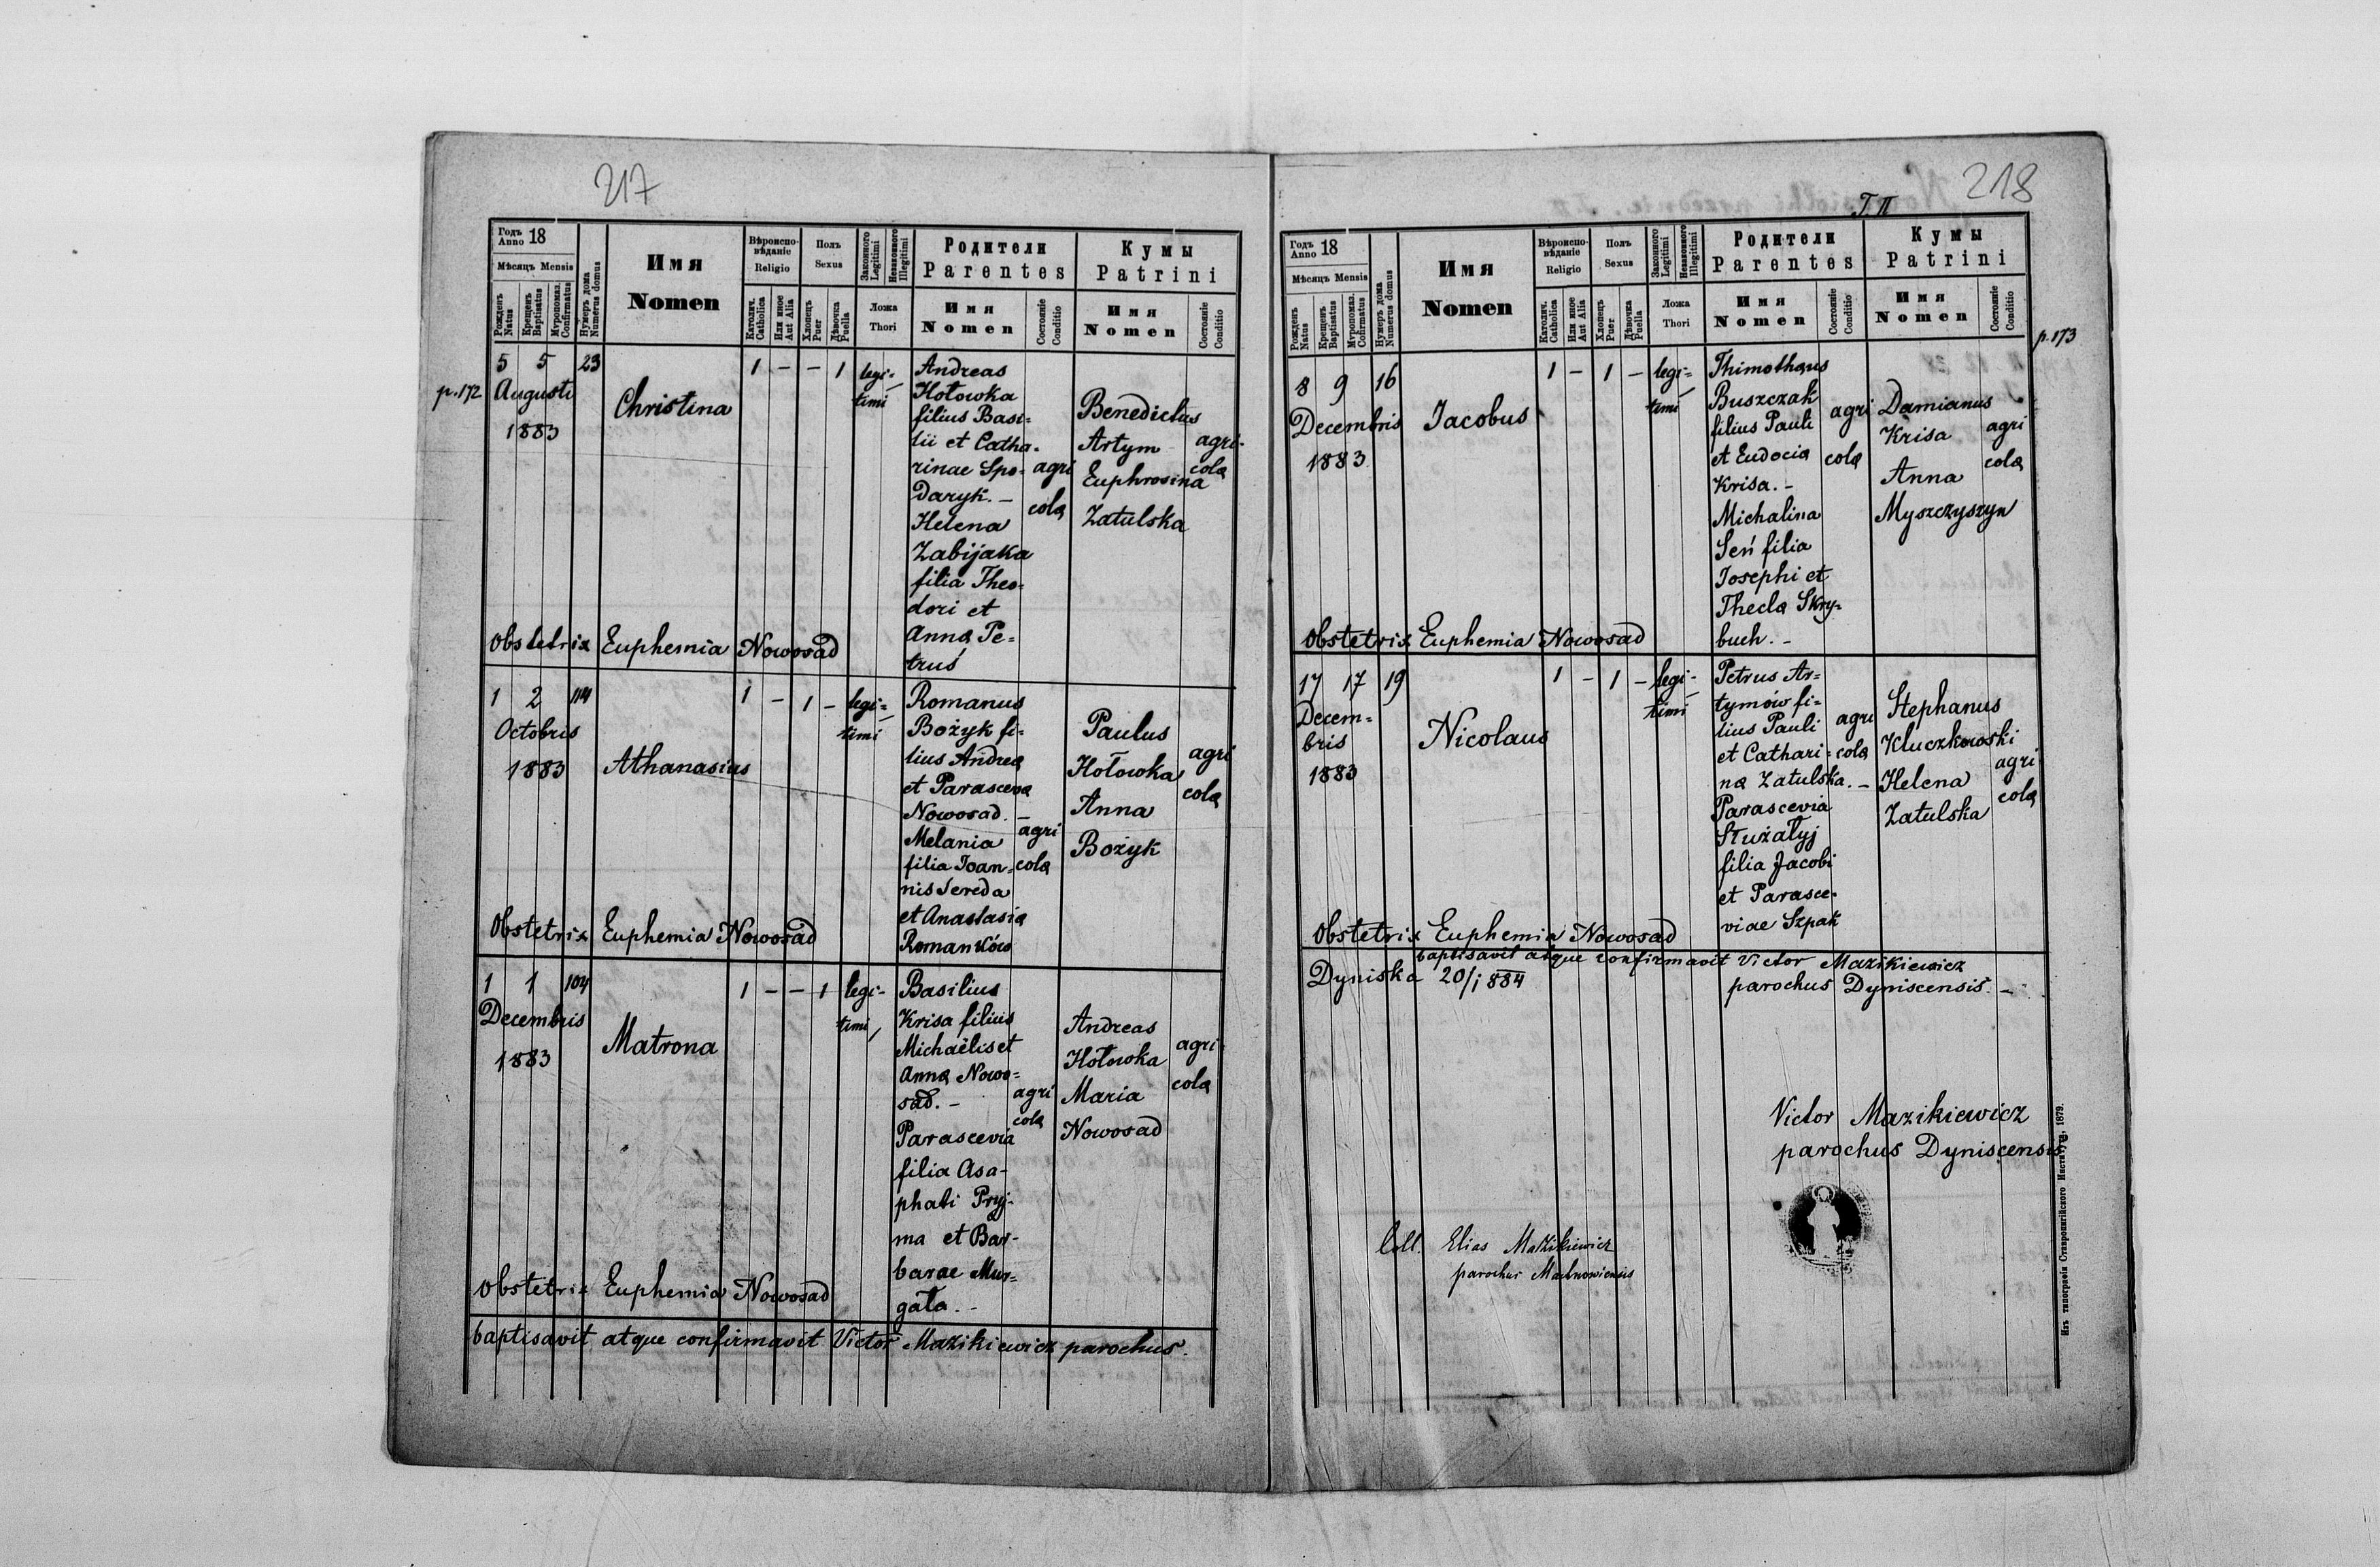 217
Годъ Anno 18
Мѣсяцъ Mensis
Рожденъ Natus
Крещенъ Baptisatus
Мѵропомаз. Confirmatus
Нумеръ дома Numerus domus
Имя
Nomen
Вѣроиспо-
вѣданіе
Religio
Католич. Catholica
Или иное Aut Alia
Полъ
Sexus
Хлопецъ Puer
Дѣвочка Puella
Законного Legitimi
Незаконного Illegitimi
Ложа
Thori
Родители
Parentes
Имя
Nomen
Состояніе Conditio
Кумы
Patrini
Имя
Nomen
Состояніе Conditio
p. 172
5 5 23
Augusti
1883
Christina
1 - - 1
legi-
timi
Andreas
Hołowka
filius Basi-
lii et Catha-
rinae Spo-
daryk. -
Helena
Zabijaka
filia Theo-
dori et
Anna Pe-
truś
agri
cola
Benedictus
Artym
Euphrosina
Zatulska
agri-
cola
Obstetrix Euphemia Nowosad
1 2 114
Octobris
1883
Athanasius
1 - 1 -
legi-
timi
Romanus
Bożyk fi-
lius Andrea
et Parasceva
Nowosad. -
Melania
filia Ioan-
nis Sereda
et Anastasia
Romanków
agri
cola
Paulus
Hołowka
Anna
Bożyk
agri
cola
Obstetrix Euphemia Nowosad
1 1 104
Decembris
1883
Matrona
1 - - 1
legi-
timi
Basilius
Krisa filius
Michaëlis et
Anna Nowo-
sad. -
Parascevia
filia Asa-
phati Pryj-
ma et Bar-
barae Mur-
gała. -
agri
cola
Andreas
Hołowka
Maria
Nowosad
agri-
cola
Obstetrix Euphemia Nowosad
baptisavit atque confirmavit Victor Mazikiewicz parochus.
218
T. II
Годъ Anno 18
Мѣсяцъ Mensis
Рожденъ Natus
Крещенъ Baptisatus
Мѵропомаз. Confirmatus
Нумеръ дома Numerus domus
Имя
Nomen
Вѣроиспо-
вѣданіе
Religio
Католич. Catholica
Или иное Aut Alia
Полъ
Sexus
Хлопецъ Puer
Дѣвочка Puella
Законного Legitimi
Незаконного Illegitimi
Ложа
Thori
Родители
Parentes
Имя
Nomen
Состояніе Conditio
Кумы
Patrini
Имя
Nomen
Состояніе Conditio
p. 173
8 9 16
Decembris
1883
Iacobus
1 - 1 -
legi-
timi
Thimothaeus
Buszczak
filius Pauli
et Eudocia
Krisa. -
Michalina
Seń filia
Iosephi et
Thecla Skry-
buch. -
agri
cola
Damianus
Krisa
Anna
Myszczyszyn
agri
cola
Obstetrix Euphemia Nowosad
17 17 19
Decem-
bris
1883
Nicolaus
1 - 1 -
legi-
timi
Petrus Ar-
tymów fi-
lius Pauli
et Cathari-
na Zatulska. -
Parascevia
Służałyj
filia Jacobi
et Parasce-
viae Szpak
agri
cola
Stephanus
Kluczkowski
Helena
Zatulska
agri
cola
Obstetrix Euphemia Nowosad
baptisavit atque confirmavit Victor Mazikiewicz
Dyniska 20/1 884 parochus Dyniscensis. -
Victor Mazikiewicz
parochus Dyniscensis
Coll. Elias Mazikiewicz
parochus Machnowiensis
Изъ типографіи Ставропигійского Института, 1879.